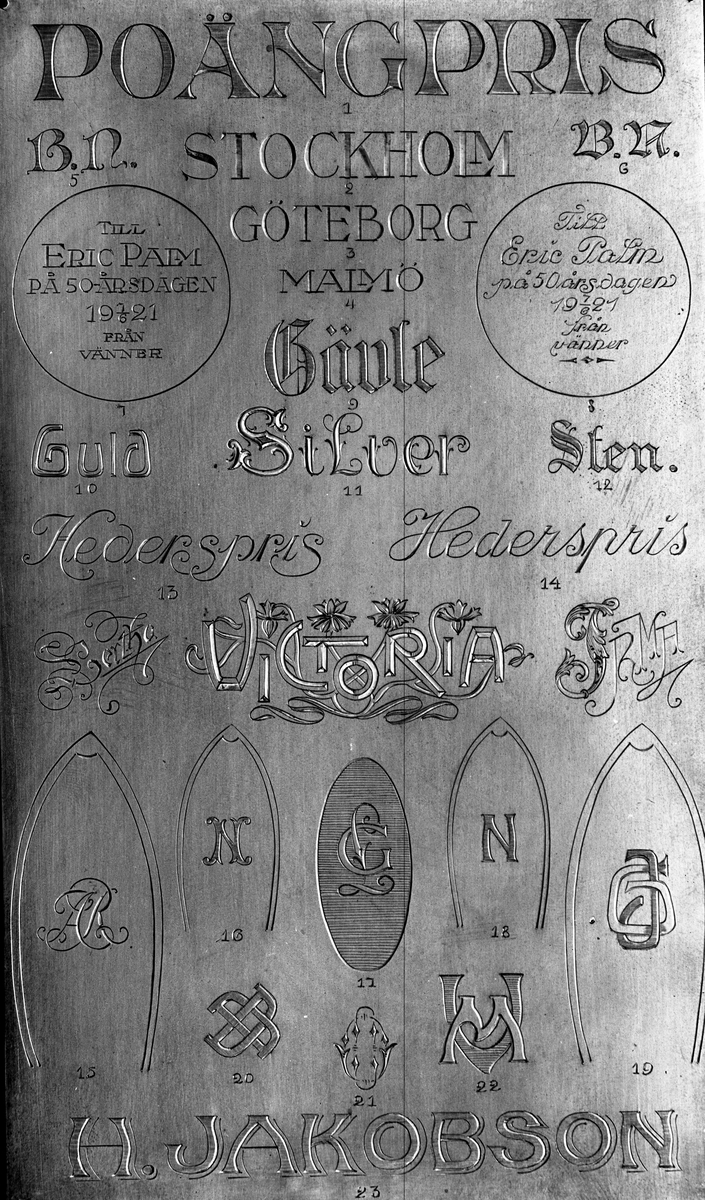 POÄNGPRIS
1
B.N.
5
STOCKHOLM
2
B.N.
6
GÖTEBORG
3
MALMÖ
4
TILL
ERIC PALM
PÅ 50-ÅRSDAGEN
19 7/6 21
FRÅN
VÄNNER
7
Till
Eric Palm
på 50årsdagen
19 7/6 21
från
vänner
8
Gävle
9
Guld
10
Silver
11
Sten.
12
Hederspris
13
Hederspris
14
VICTORIA
IRMA
AR
15
N
16
17
N
18
19
20
21
22
H. JAKOBSON
23